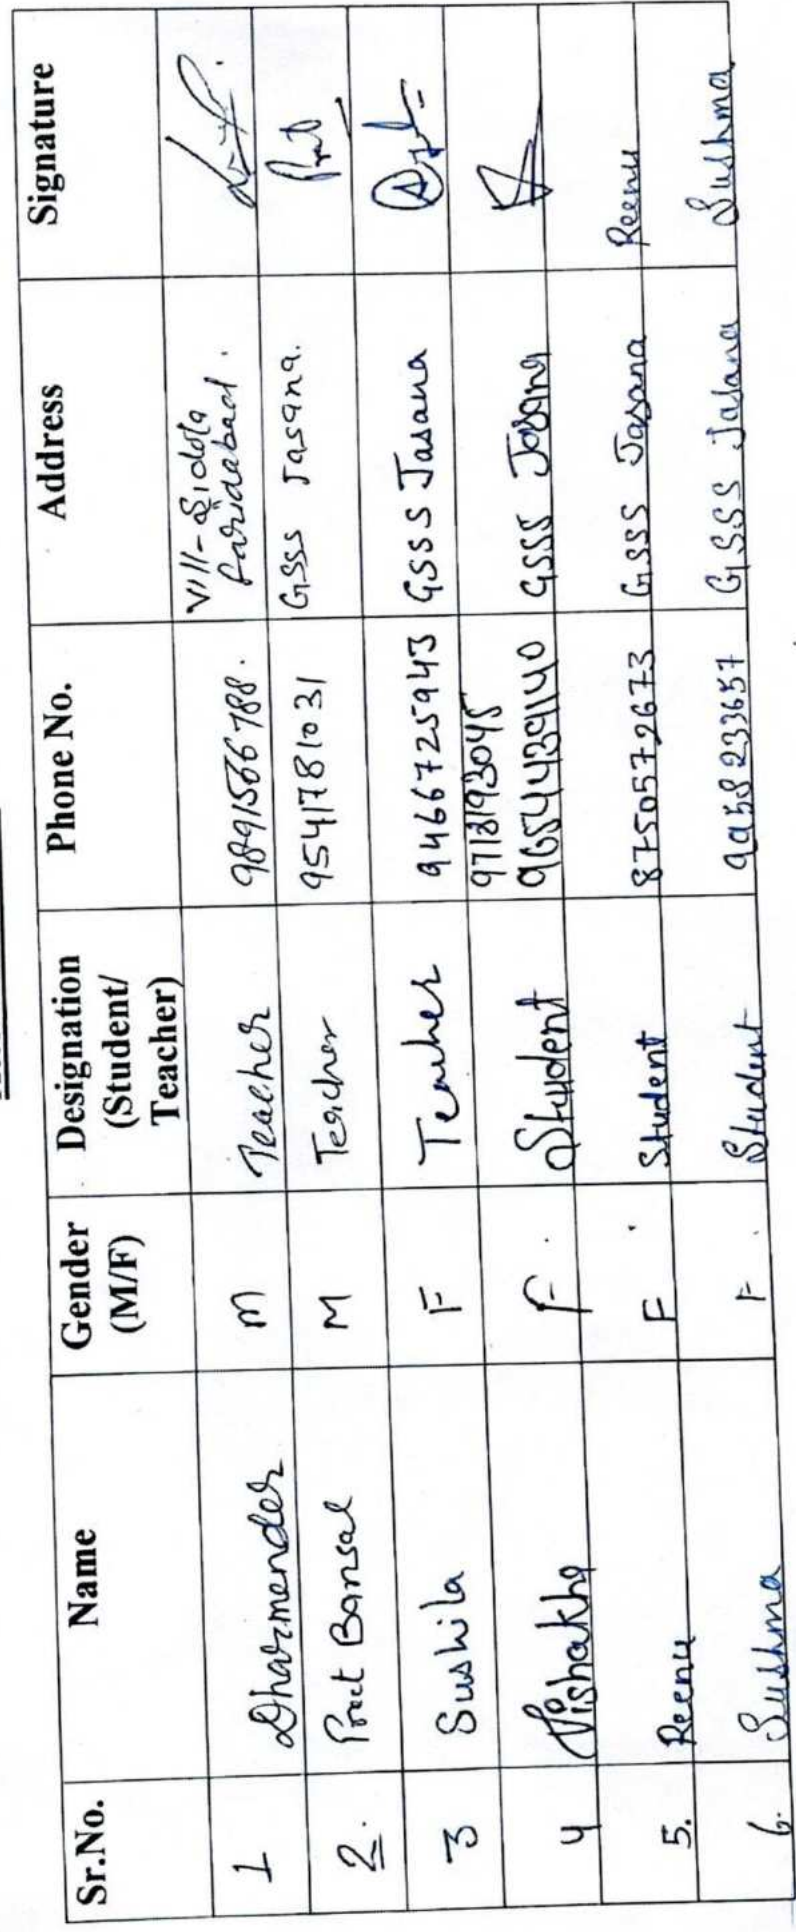 Sr.No. Name Gender (M/F) Designation (Student/ Teacher) Phone No. Address Signature
1 Dharmender M Teacher 9891566788. Vill- Sidola Faridabad.
2. Preet Bansal M Teacher 9541781031 GSSS Jasana.
3 Sushila F Teacher 9466725943 GSSS Jasana
4 Vishakha F. Student 9718193045 9654439140 GSSS Jasana
5. Reenu F. Student 8750572673 GSSS Jasana Reenu
6. Sushma F. Student 9958233657 GSSS Jasana Sushma